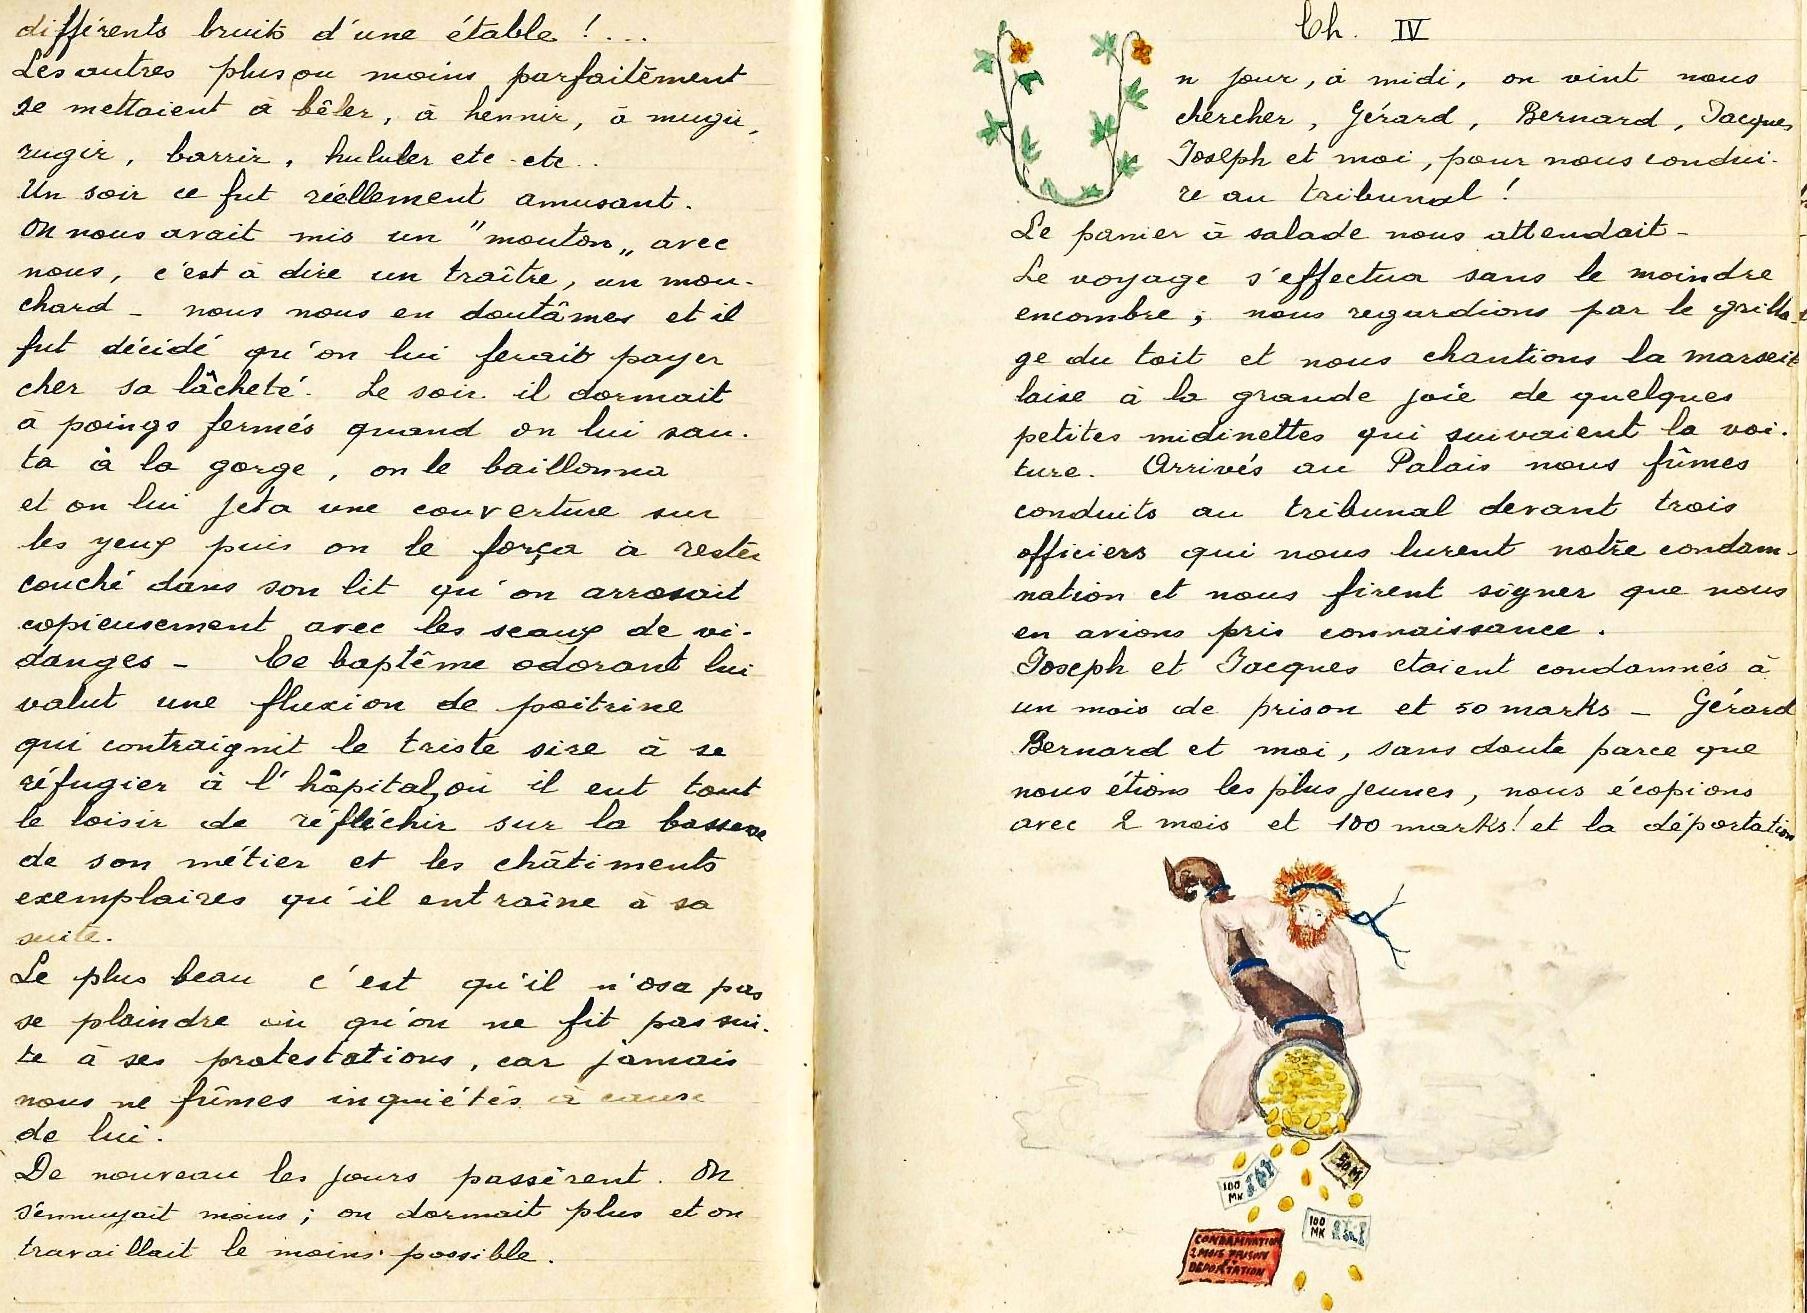 différents bruits d'une étable ! ...
Les autres plus ou moins parfaitement
se mettaient à bêler, à hennir, à mugir,
rugir, barrir, hululer etc etc..
Un soir ce fut réellement amusant.
On nous avait mis un "mouton„ avec
nous, c'est à dire un traître, un mou-
chard - nous nous en doutâmes et il
fut décidé qu'on lui ferait payer
cher sa lâcheté. Le soir il dormait
à poings fermés quand on lui sau-
ta à la gorge, on le baillonna
et on lui jeta une couverture sur
les yeux puis on le força à rester
couché dans son lit qu'on arrosait
copieusement avec les seaux de vi-
danges - Ce baptême odorant lui
valut une fluxion de poitrine
qui contraignit le triste sire à se
réfugier à l'hôpital, où il eut tout
le loisir de réfléchir sur la bassesse
de son métier et les châtiments
exemplaires qu'il entraîne à sa
suite.
Le plus beau c'est qu'il n'osa pas
se plaindre ou qu'on ne fit pas sui-
te à ses protestations, car jamais
nous ne fûmes inquiétés à cause
de lui.
De nouveau les jours passèrent. On
s'ennuyait moins ; on dormait plus et on
travaillait le moins possible.
Ch. IV
Un jour, à midi, on vint nous
chercher, Gérard, Bernard, Jacques
Joseph et moi, pour nous condui-
re au tribunal !
Le panier à salade nous attendait -
Le voyage s'effectua sans le moindre
encombre ; nous regardions par le grilla-
ge du toit et nous chantions la marseil
laise à la grande joie de quelques
petites midinettes qui suivaient la voi-
ture. Arrivés au Palais nous fûmes
conduits au tribunal devant trois
officiers qui nous lurent notre condam-
nation et nous firent signer que nous
en avions pris connaissance.
Joseph et Jacques etaient condamnés à
un mois de prison et 50 marks - Gérard
Bernard et moi, sans doute parce que
nous étions les plus jeunes, nous écopions
avec 2 mois et 100 marks! et la déportation
50 M
100
MK
100
MK
CONDAMNATION
2 MOIS PRISON
ET
DEPORTATION